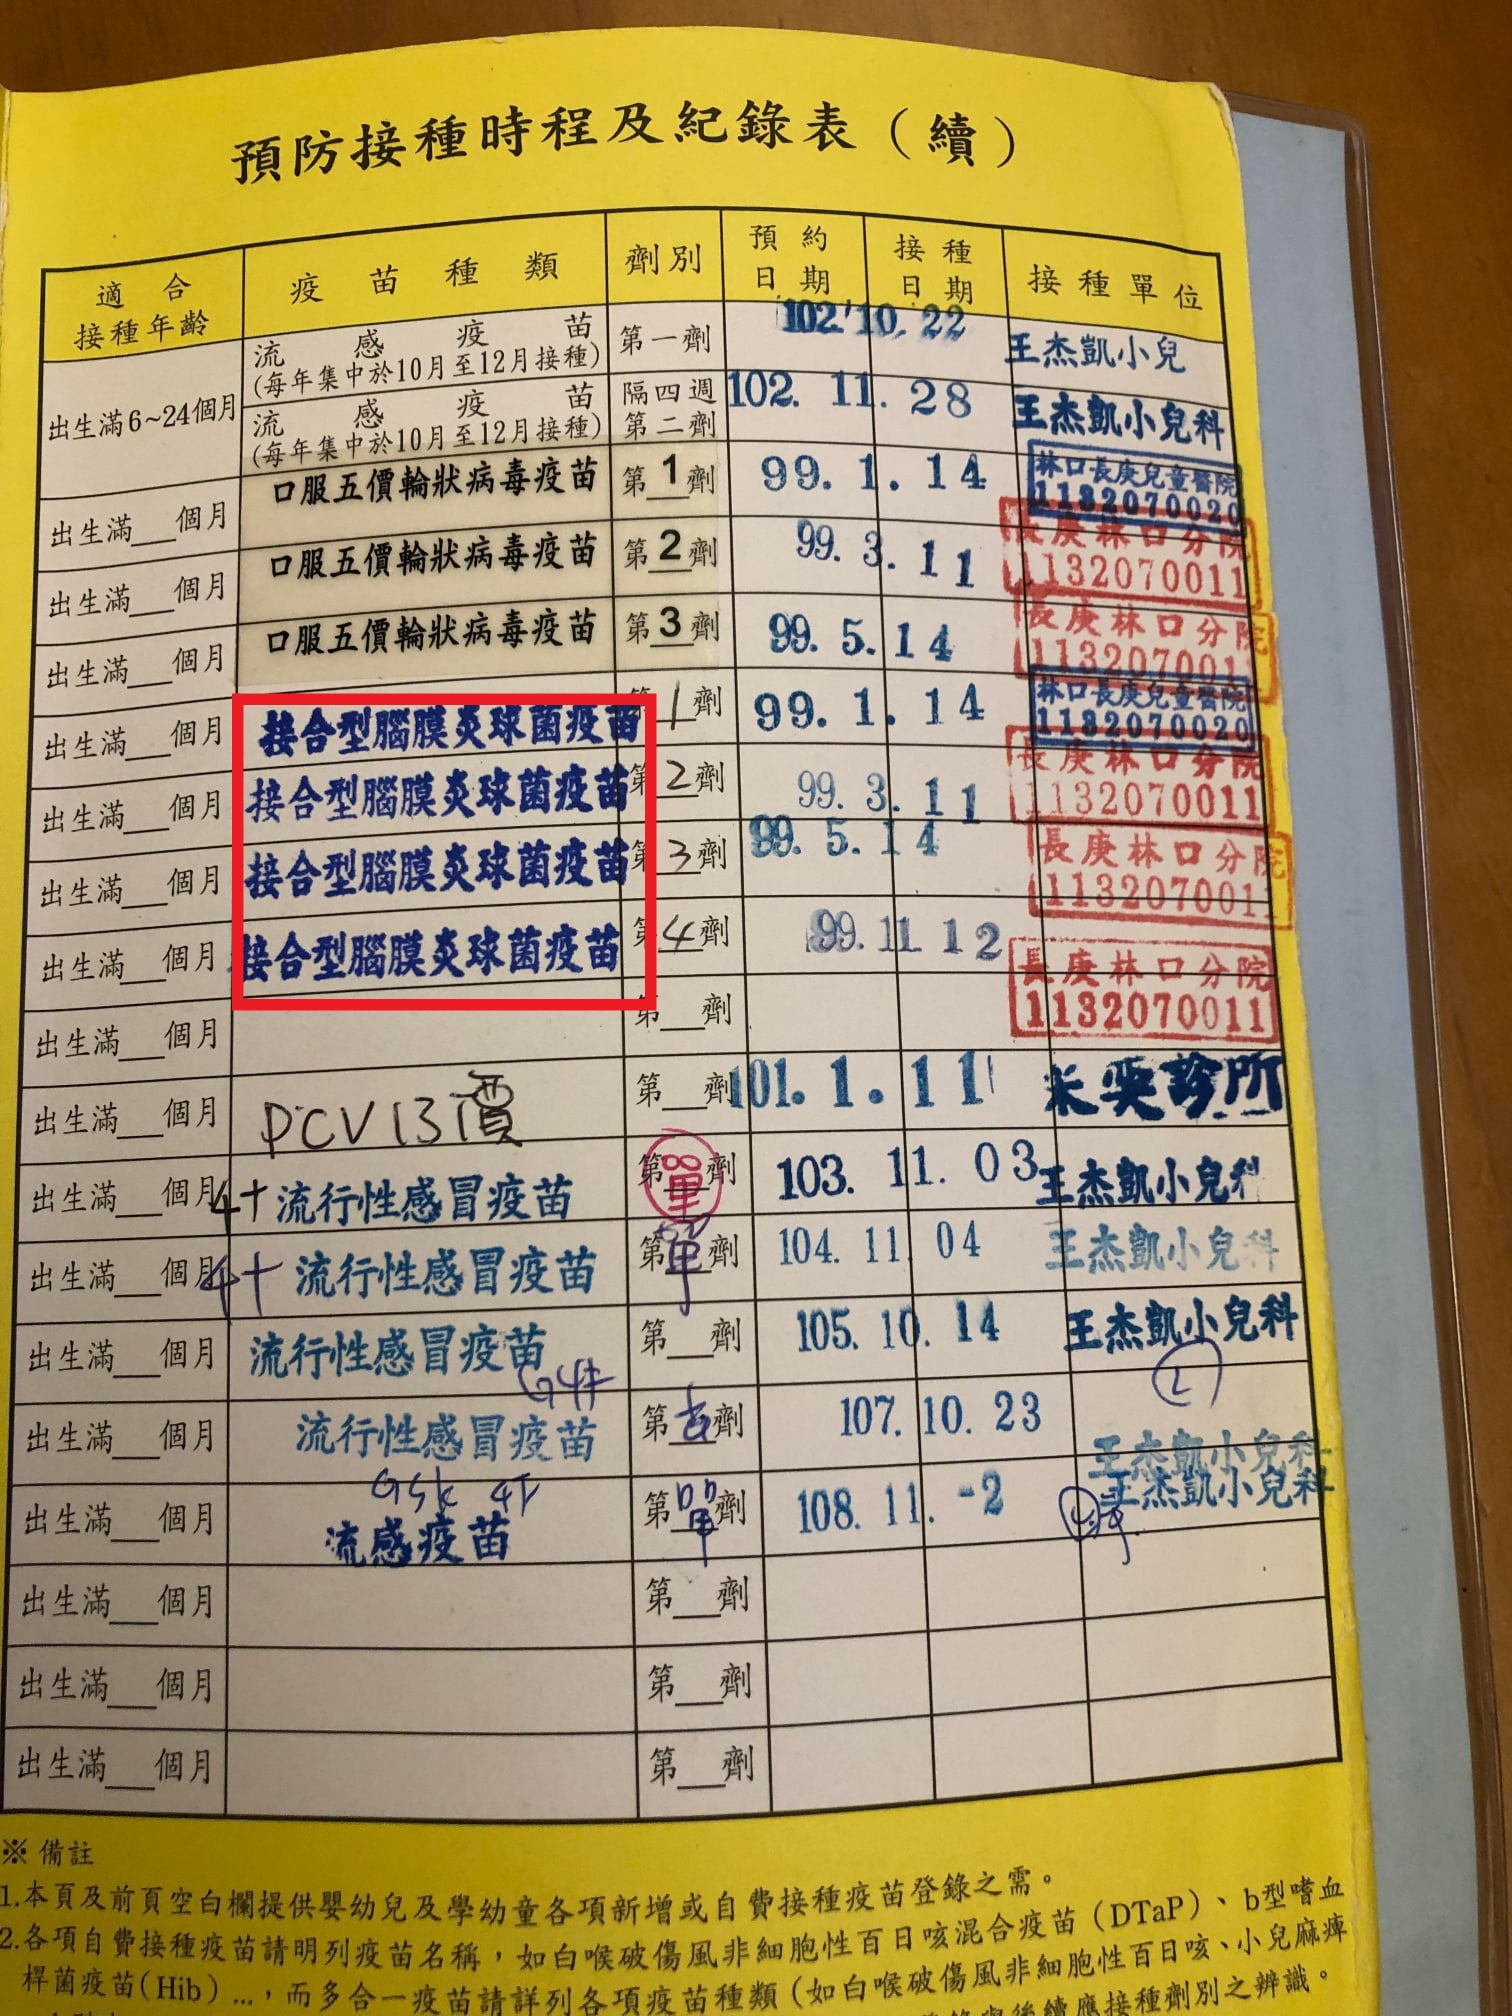 預防接種時程及紀錄表(續)
適合接種年齡 疫苗種類 劑別 預約日期 接種日期 接種單位
出生滿6~24個月 流感疫苗 (每年集中於10月至12月接種) 第一劑 102.10.22 王杰凱小兒
流感疫苗 (每年集中於10月至12月接種) 隔四週第二劑 102.11.28 王杰凱小兒科
出生滿__個月 口服五價輪狀病毒疫苗 第1劑 99.1.14 林口長庚兒童醫院 1132070020
出生滿__個月 口服五價輪狀病毒疫苗 第2劑 99.3.11 長庚林口分院 1132070011
出生滿__個月 口服五價輪狀病毒疫苗 第3劑 99.5.14 長庚林口分院 1132070011
出生滿__個月 接合型腦膜炎球菌疫苗 第1劑 99.1.14 林口長庚兒童醫院 1132070020
出生滿__個月 接合型腦膜炎球菌疫苗 第2劑 99.3.11 長庚林口分院 1132070011
出生滿__個月 接合型腦膜炎球菌疫苗 第3劑 99.5.14 長庚林口分院 1132070011
出生滿__個月 接合型腦膜炎球菌疫苗 第4劑 99.11.12 長庚林口分院 1132070011
出生滿__個月 第__劑
出生滿__個月 PCV13價 第__劑 101.1.11 診所
出生滿__個月 流行性感冒疫苗 第單劑 103.11.03 王杰凱小兒科
出生滿__個月 流行性感冒疫苗 第單劑 104.11.04 王杰凱小兒科
出生滿__個月 流行性感冒疫苗 第__劑 105.10.14 王杰凱小兒科
出生滿__個月 流行性感冒疫苗 第 劑 107.10.23 王杰凱小兒科
出生滿__個月 GSK 流感疫苗 第單劑 108.11.-2 王杰凱小兒科
出生滿__個月 第__劑
出生滿__個月 第__劑
出生滿__個月 第__劑
※備註
1.本頁及前頁空白欄提供嬰幼兒及學幼童各項新增或自費接種疫苗登錄之需。
2.各項自費接種疫苗請明列疫苗名稱,如白喉破傷風非細胞性百日咳混合疫苗(DTaP)、b型嗜血
桿菌疫苗(Hib)...,而多合一疫苗請詳列各項疫苗種類(如白喉破傷風非細胞性百日咳、小兒麻痺
後續應接種劑別之辨識。